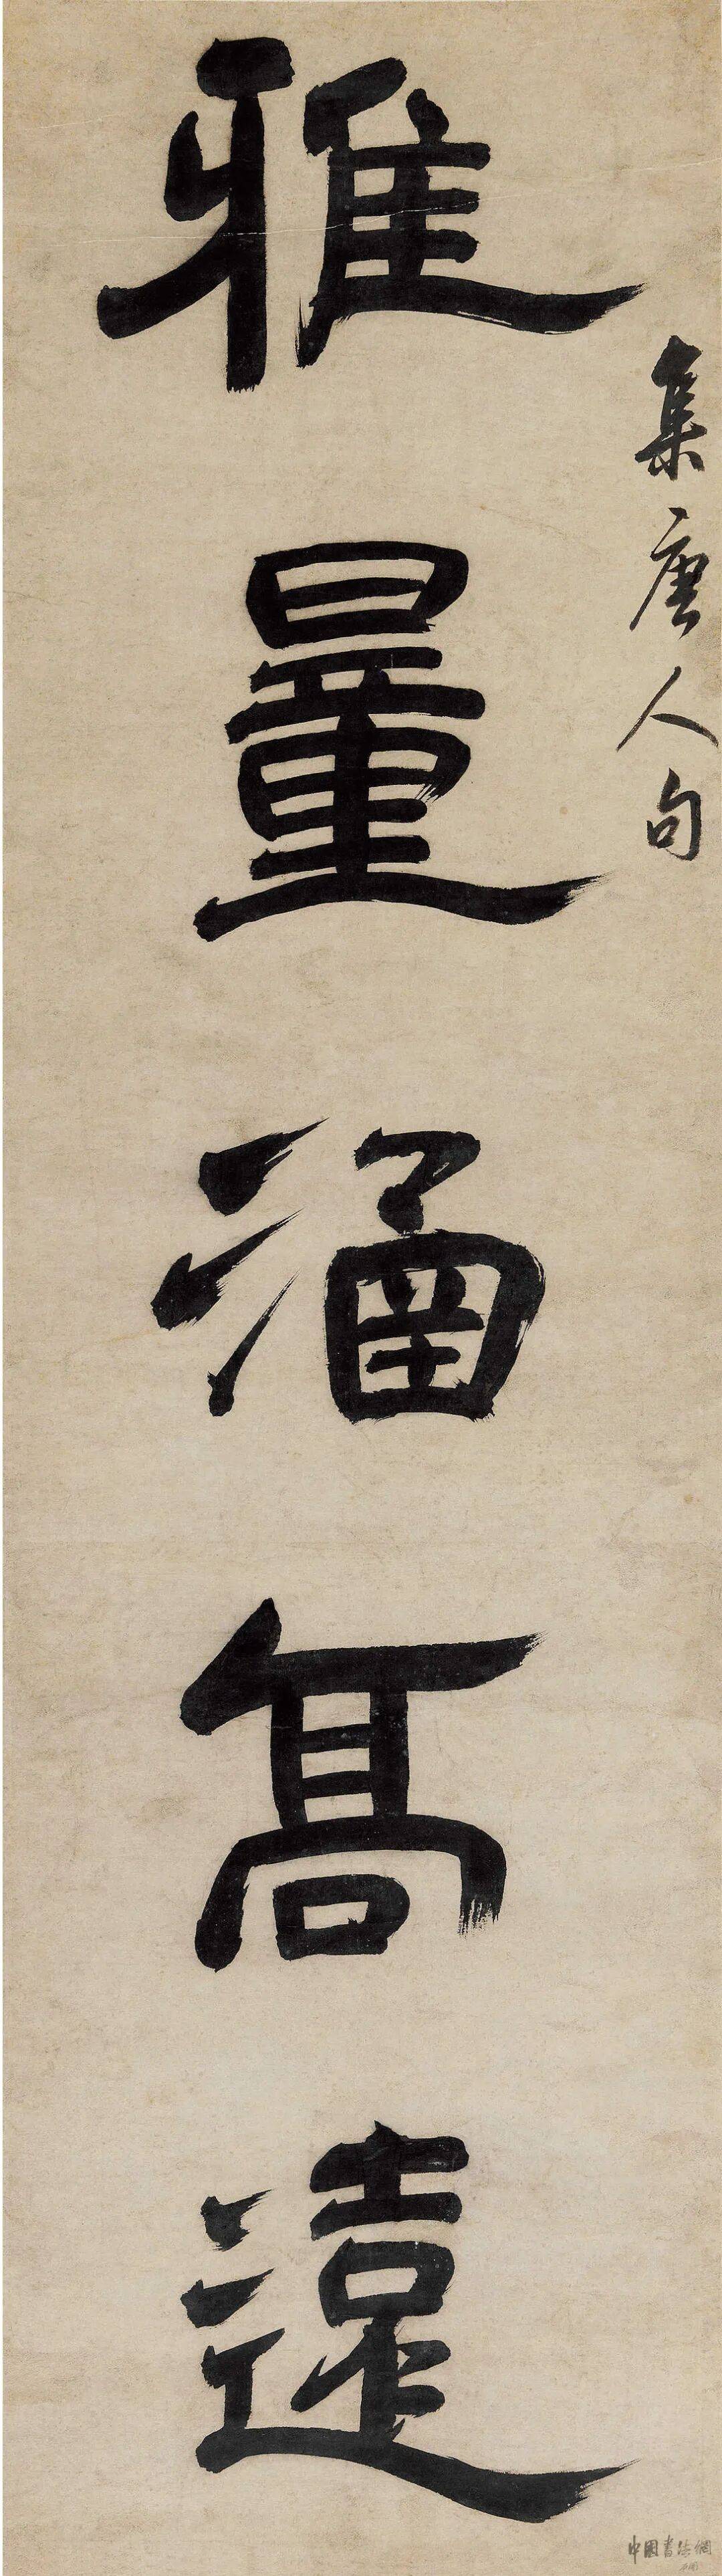 集唐人句
雅量涵高遠
中國書法網